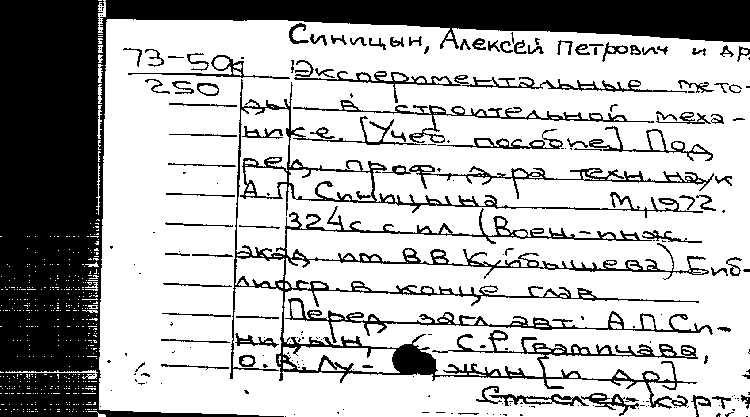 Синицын, Алексей Петрович и др
73-50к
250
Экспериментальные мето-
ды в строительной меха-
нике. [Учеб. пособие] Под
ред. проф., д-ра техн. наук
А.П. Синицына. М., 1972.
324 с. с ил. (Воен.-инж.
акад. им. В.В. Куйбышева) Биб-
лиогр. в конце глав
Перед загл. авт.: А.П. Си-
ницын, С.Р. Гвамичава,
О.В. Лу- жин [и др.]
См. след. карт
6